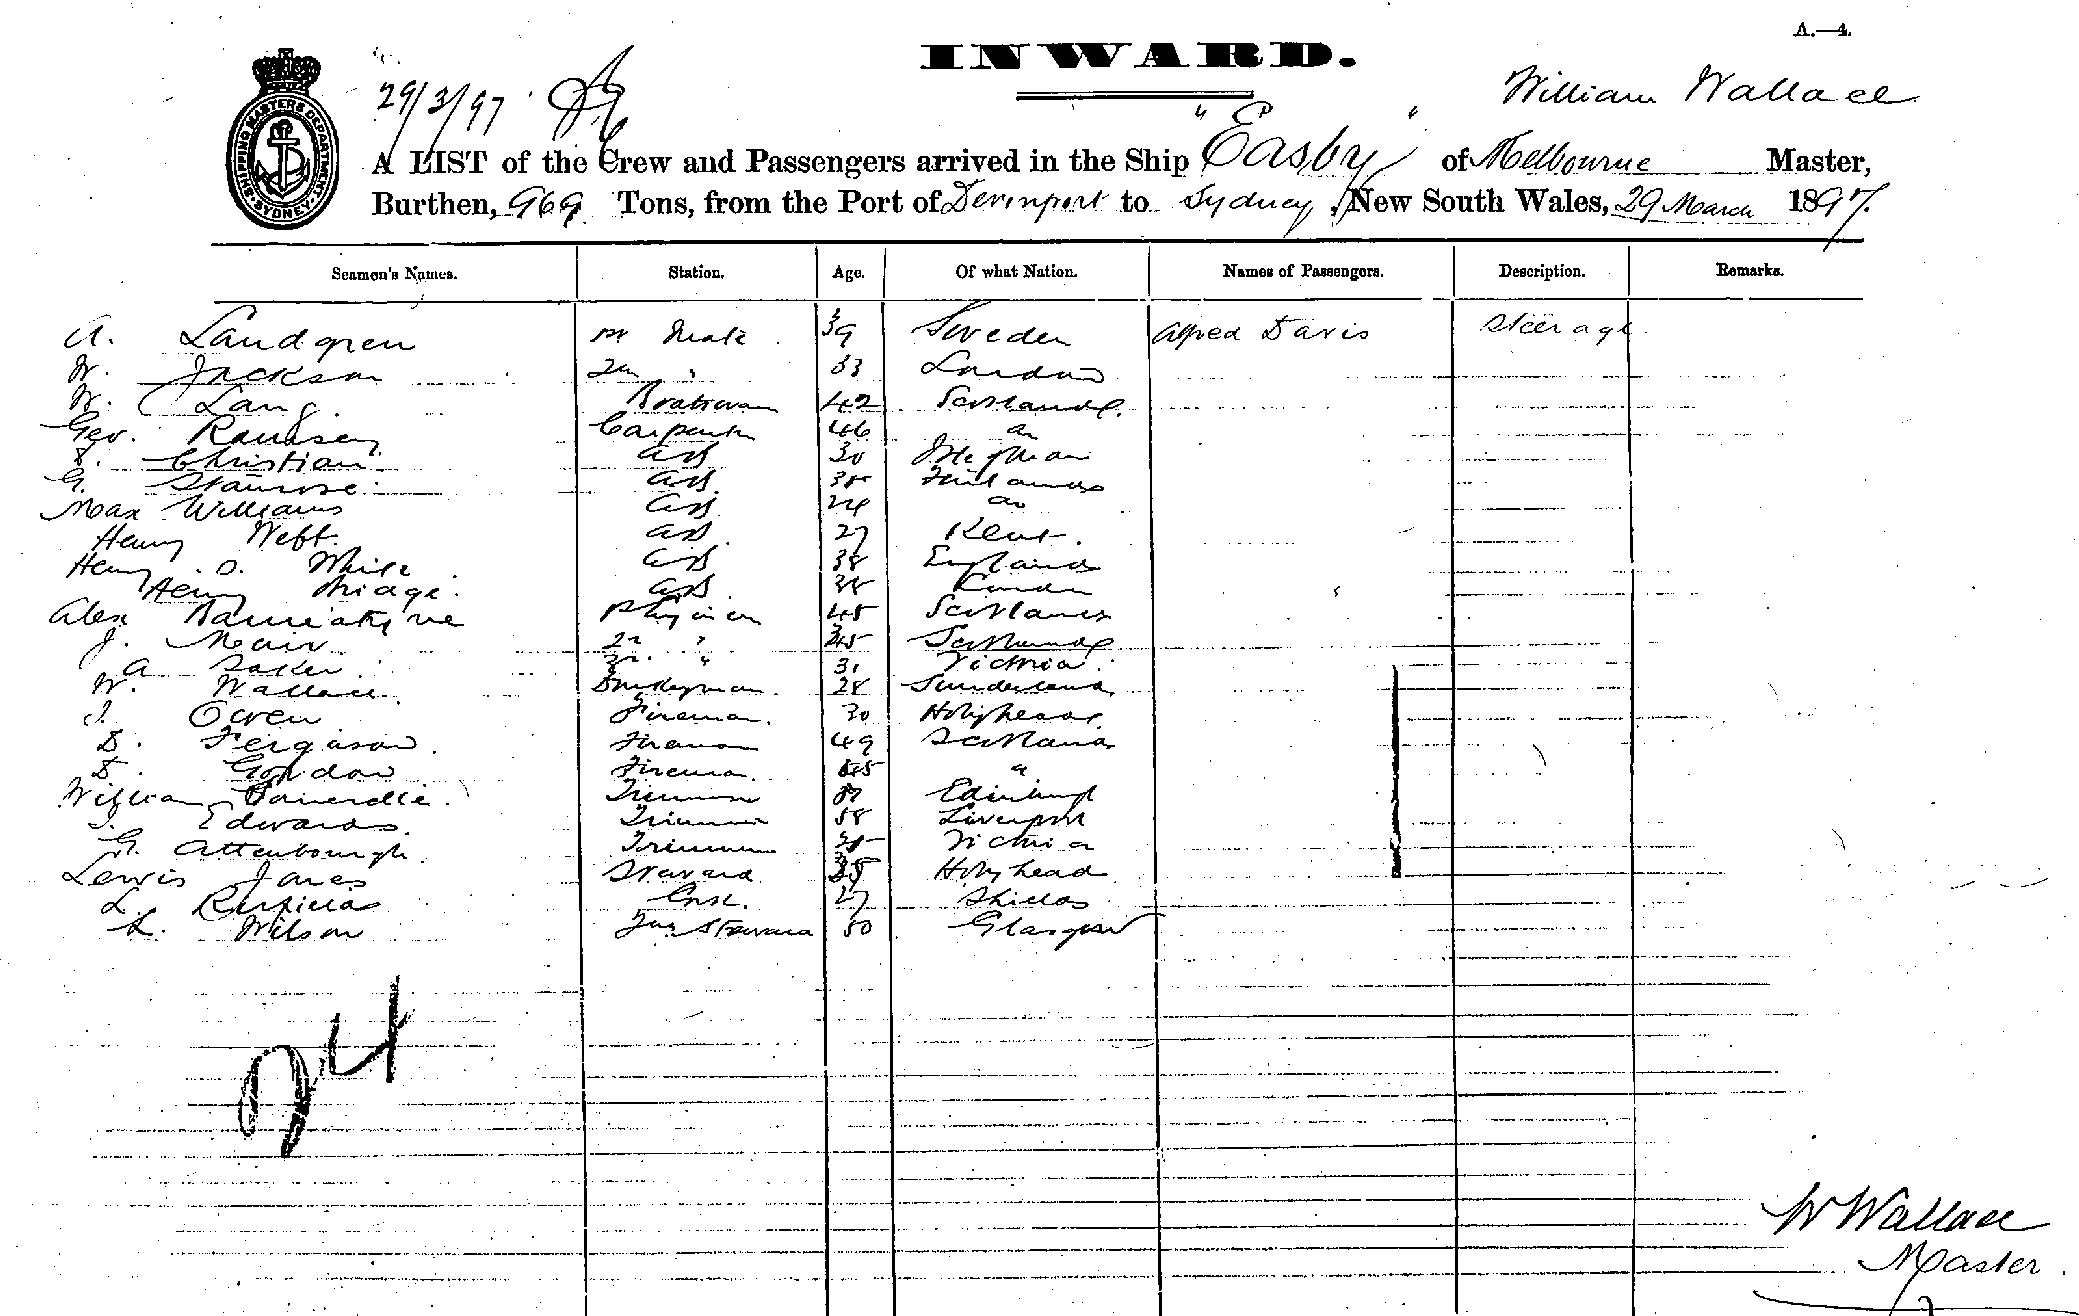 A.—4.
INWARD.
29/3/97
William Wallace
A LIST of the Crew and Passengers arrived in the Ship "Easby" of Melbourne Master,
Burthen, 969 Tons, from the Port of Devonport to Sydney, New South Wales, 29 March 1897.
SHIPPING MASTERS DEPARTMENT SYDNEY
Seamen's Names. Station. Age. Of what Nation. Names of Passengers. Description. Remarks.
A. Landgren Mate 39 Sweden Alfred Davis Steerage
W. Jackson 2n " 33 London
W. Lang. Boatswain 42 Scotland.
Geo. Ramsey Carpenter 46 do
Christian AB 30
G. AB 35
Max Williams AB 24 do
Henry Webb. AB 27 Kent.
Henry O. White AB 38 England
Henry AB 38 London
Alex Bannatyne 45 Scotland
J. Mair 2n " Scotland
A Baker 3r. " 31 Victoria.
W. Wallace. Donkeyman. 28 Sunderland
J. Owen Fireman. 30 Holyhead.
D. Ferguson. Fireman 49 Scotland
D. Gordon Fireman. 45 "
William Trimmer Edinburgh
J. Edwards. Trimmer 58 Liverpool
G. Attenbourgh. Trimmer Victoria
Lewis Jones Steward Holyhead
L. Cook. 27 Shields
L. Wilson Steward 50 Glasgow
24
W Wallace
Master.